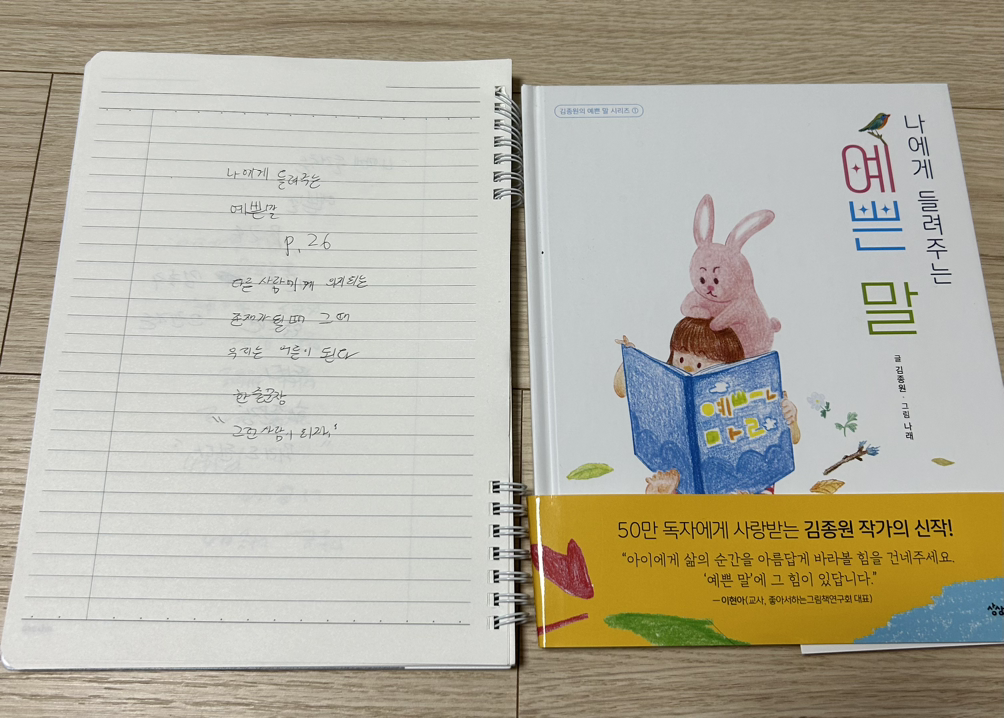 나에게 들려주는
예쁜말
p. 26
다른 사람에게 의지되는
존재가 될 때 그 때
우리는 어른이 된다
한 줄 문장
김종원의 예쁜 말 시리즈 ①
나에게 들려주는
예쁜 말
글 김종원 · 그림 나래
예쁜
말
50만 독자에게 사랑받는 김종원 작가의 신작!
“아이에게 삶의 순간을 아름답게 바라볼 힘을 건네주세요.
‘예쁜 말’에 그 힘이 있답니다.”
— 이현아(교사, 좋아서하는그림책연구회 대표)